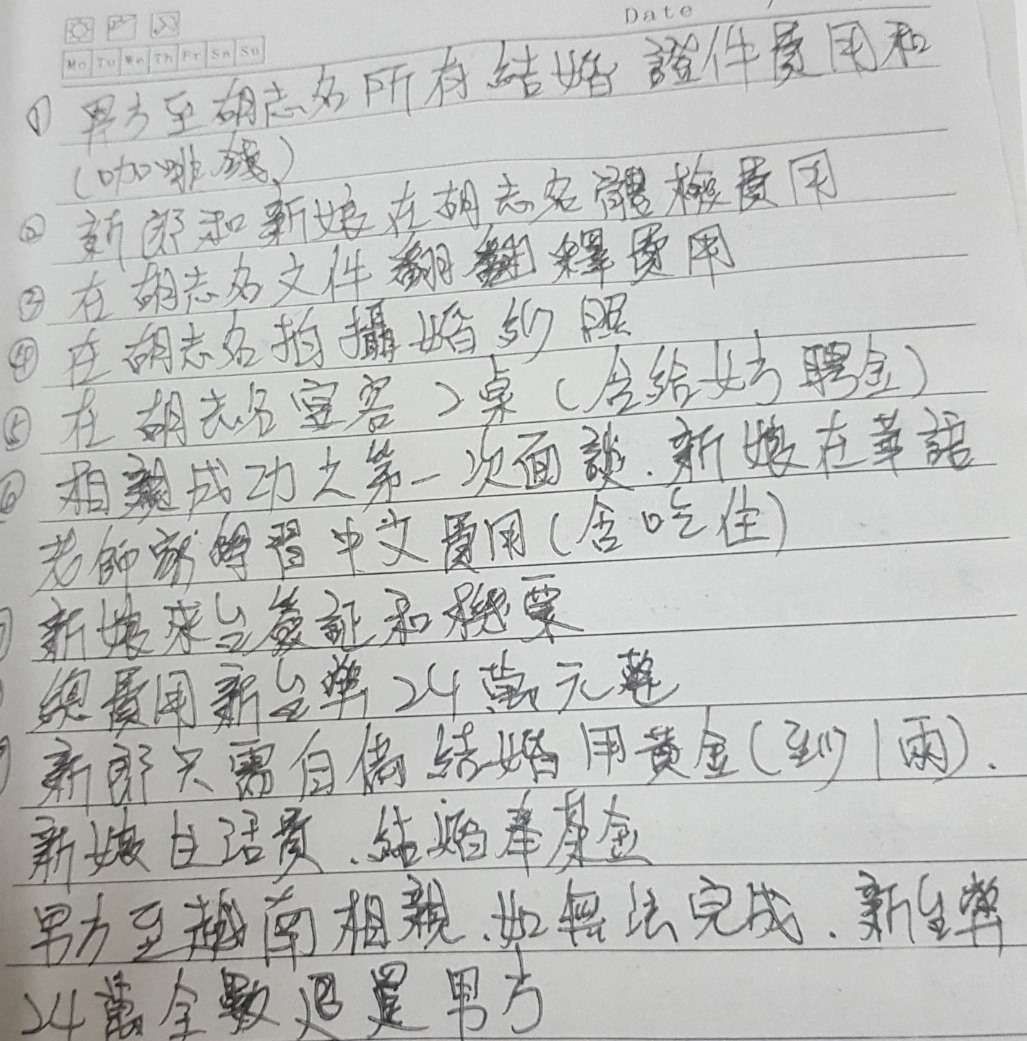 Date
Mo Tu We Th Fr Sa Su
① 男方至胡志名所有結婚證件費用和
(咖啡錢)
② 新郎和新娘在胡志名體檢費用
③ 在胡志名文件翻譯費用
④ 在胡志名拍攝婚紗照
⑤ 在胡志名宴客2桌(含給女方聘金)
⑥ 相親成功之第一次面談.新娘在華語
老師家學習中文費用(含吃住)
新娘來台簽証和機票
總費用新台幣24萬元整
新郎只需自備結婚用黃金(至少1兩).
新娘生活費.結婚基金
男方至越南相親.如無法完成.新台幣
24萬全數退還男方